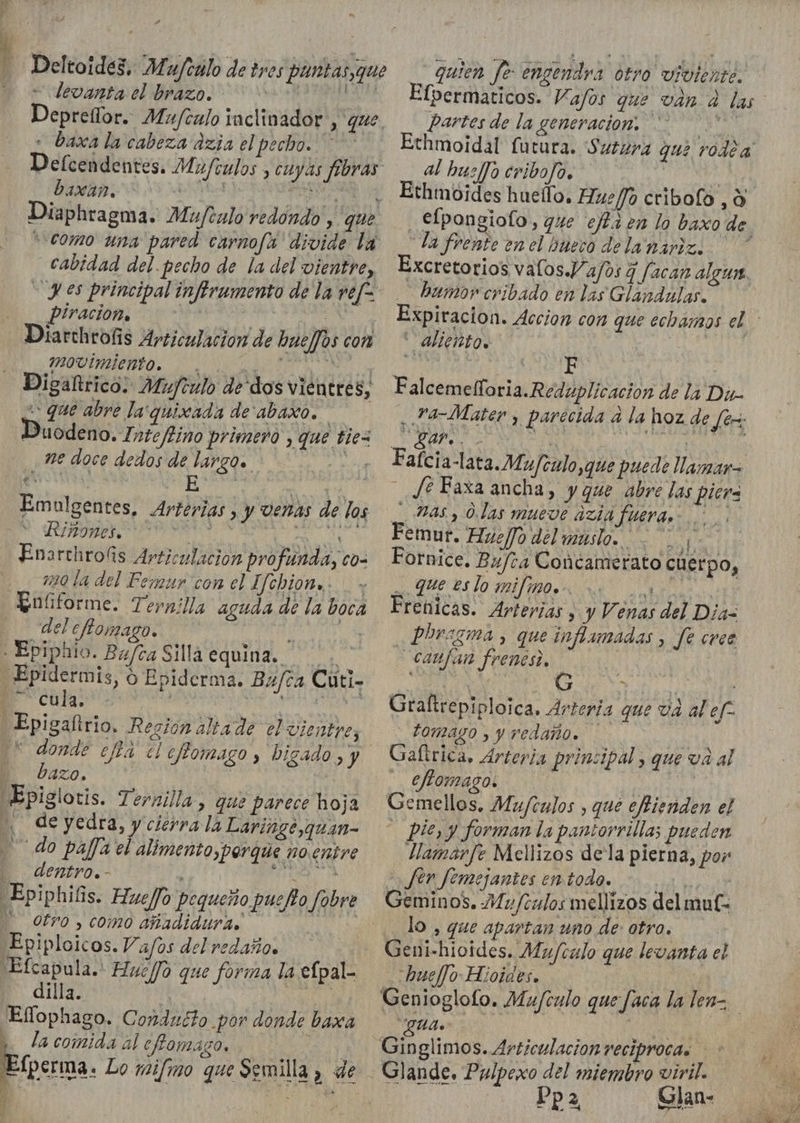 Deltoides. Muſculo de tres puntas, que
levanta el brazo.
Depreſſor. Muſculo inclinador, que
baxa la cabeza àzia el pecho.
Deſcendentes. Muſculos, cuyas fibras
baxan.
Diaphragma. Muſculo redondo, que
como una pared carnoſa divide la
cabidad del pecho de la del vientre,
y es principal inſtrumento de la reſ-
piracion.
Diarthroſis Articulacion de hueſſos con
movimiento.
Digaſtrico. Muſculo de dos vientres,
que abre la quixada de abaxo.
Duodeno. Inteſtino primero, que tie-
ne doce dedos de largo.
E
Emulgentes, Arterias, y venas de los
Riñones.
Enarthroſis Articulacion profunda, co-
mo la del Femur con el Iſchion.
Enſiforme. Ternilla aguda de la boca
del eſtomago.
Epiphio. Buſca Silla equina.
Epidermis, ò Epiderma. Buſca Cuti-
cula.
Epigaſtrio. Region alta de el vientre,
donde eſtà el eſtomago, higado, y
bazo.
Epiglotis. Ternilla, que parece hoja
de yedra, y cierra la Laringe, quan-
do paſſa el alimento, porque no entre
dentro.
Epiphiſis. Hueſſo pequeño pueſto ſobre
otro, como añadidura.
Epiploicos. Vaſos del redaño.
Eſcapula. Hueſſo que forma la eſpal-
dilla.
Eſſophago. Conducto por donde baxa
la comida al eſtomago.
Eſperma. Lo miſmo que Semilla, de
quien ſe engendra otro viviente.
Eſpermaticos. Vaſos que vàn à las
partes de la generacion.
Ethmoidal ſutura. Sutura que rodèa
al hueſſo criboſo.
Ethmoides hueſſo. Hueſſo criboſo, ò
eſpongioſo, que eſtà en lo baxo de
la frente en el hueco de la nariz.
Excretorios vaſos. Vaſos q̃ ſacan algun
humor cribado en las Glandulas.
Expiracion. Accion con que echamos el
aliento.
F
Falcemeſſoria. Reduplicacion de la Du-
ra-Mater, parecida à la hoz de ſe-
gar.
Faſcia-lata. Muſculo, que puede llamar-
ſe Faxa ancha, y que abre las pier-
nas, ò las mueve àzia fuera.
Femur. Hueſſo del muslo.
Fornice. Buſca Concamerato cuerpo,
que es lo miſmo.
Frenicas. Arterias, y Venas del Dia-
phragma, que inflamadas, ſe cree
cauſan frenesì.
G
Graſtrepiploica. Arteria que và al eſ-
tomago, y redaño.
Gaſtrica. Arteria principal, que và al
eſtomago.
Gemellos. Muſculos, que eſtienden el
pie, y forman la pantorrilla; pueden
llamarſe Mellizos de la pierna, por
ſer ſemejantes en todo.
Geminos. Muſculos mellizos del muſ-
lo, que apartan uno de otro.
Geni-hioides. Muſculo que levanta el
hueſſo Hioides.
Geniogloſo. Muſculo que ſaca la len-
gua.
Ginglimos. Articulacion reciproca.
Glande. Pulpexo del miembro viril.
Pp2 Glan-